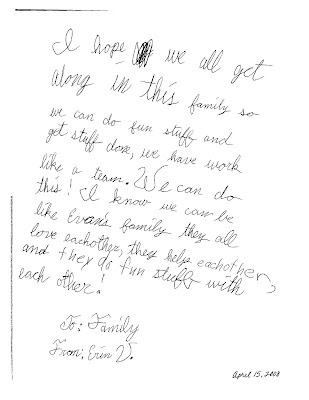 I hope we all get
along in this family so
we can do fun stuff and
get stuff done, we have work
like a team. We can do
this! I know we can be
like Evan's family they all
love eachother, they help eachother,
and they do fun stuff with
each other!
To: Family
From: Erin V.
April 15, 2008